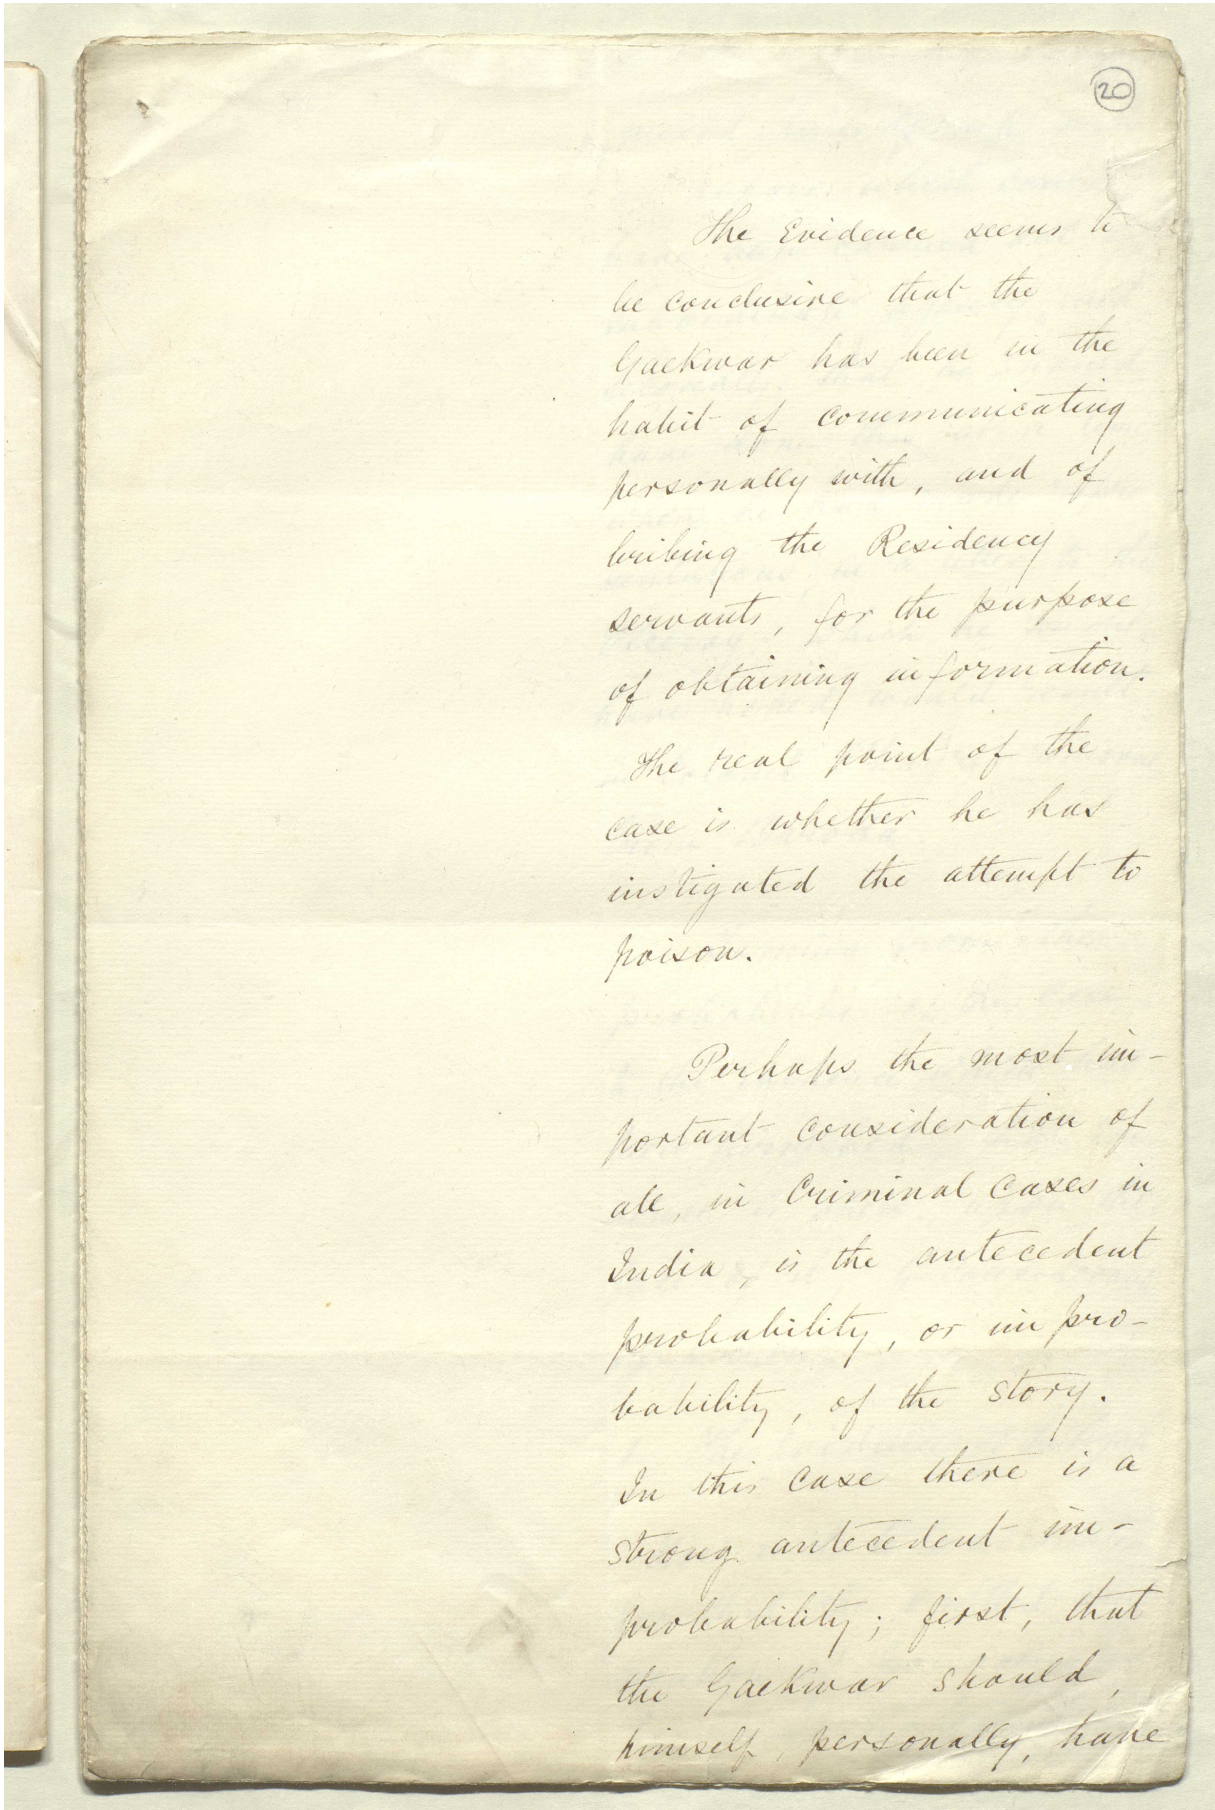 20
The Evidence seems to
be conclusive that the
Gaekwar has been in the
habit of communicating
personally with, and of
bribing the Residency
servants, for the purpose
of obtaining information.
The real point of the
case is whether he has
instigated the attempt to
poison.
Perhaps the most im-
portant consideration of
all, in Criminal Cases in
India, is the antecedent
probability, or impro-
bability, of the story.
In this case there is a
strong antecedent im-
probability; first, that
the Gaekwar should,
himself, personally, have